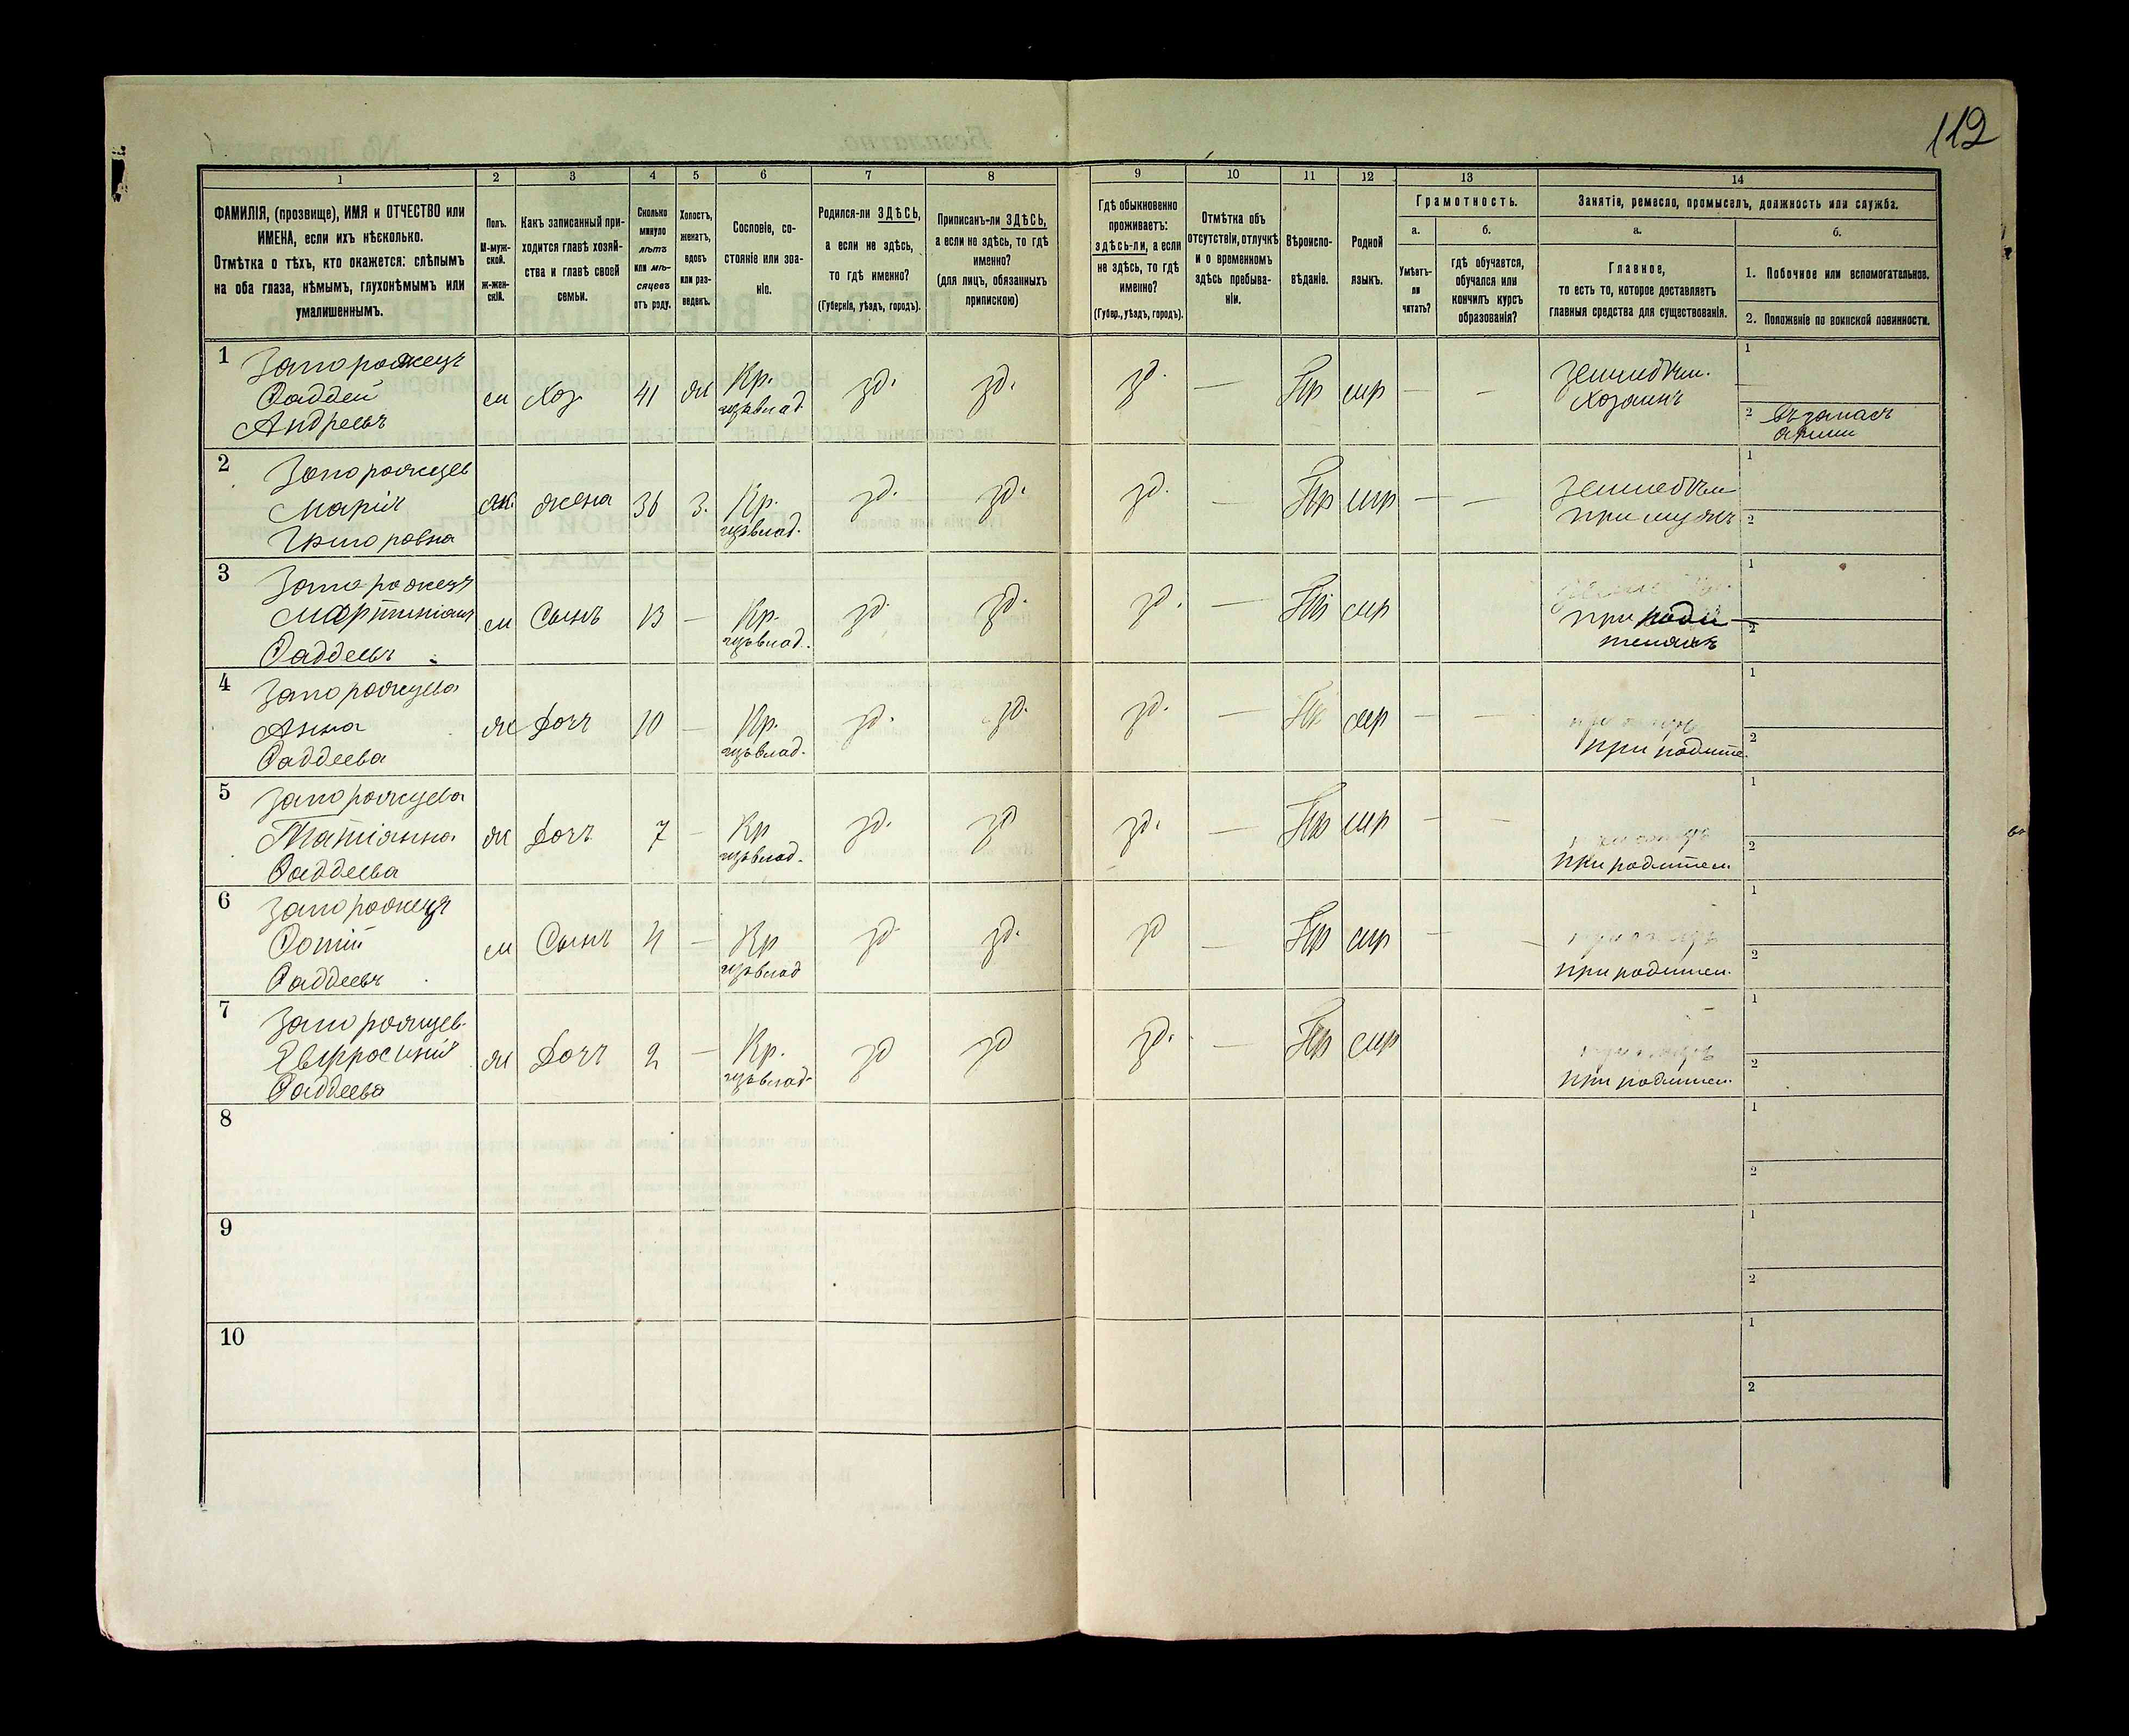 112
1 2 3 4 5 6 7 8 9 10 11 12 13 14
ФАМИЛІЯ, (прозвище), ИМЯ и ОТЧЕСТВО или
ИМЕНА, если ихъ нѣсколько.
Отмѣтка о тѣхъ, кто окажется: слѣпымъ
на оба глаза, нѣмымъ, глухонѣмымъ или
умалишеннымъ.
Полъ.
М-муж-
ской.
ж-жен-
скій.
Какъ записанный при-
ходится главѣ хозяй-
ства и главѣ своей
семьи.
Сколько
минуло
лѣтъ
или мѣ-
сяцевъ
отъ роду.
Холостъ,
женатъ,
вдовъ
или раз-
веденъ.
Сословіе, со-
стояніе или зва-
ніе.
Родился-ли ЗДѢСЬ,
а если не здѣсь,
то гдѣ именно?
(Губернія, уѣздъ, городъ).
Приписанъ-ли ЗДѢСЬ,
а если не здѣсь, то гдѣ
именно?
(для лицъ, обязанныхъ
припискою)
Гдѣ обыкновенно
проживаетъ:
здѣсь-ли, а если
не здѣсь, то гдѣ
именно?
(Губер., уѣздъ, городъ).
Отмѣтка объ
отсутствіи, отлучкѣ
и о временномъ
здѣсь пребыва-
ніи.
Вѣроиспо-
вѣданіе.
Родной
языкъ.
Грамотность.
а.
Умѣетъ-
ли
читать?
б.
гдѣ обучается,
обучался или
кончилъ курсъ
образованія?
Занятіе, ремесло, промыселъ, должность или служба.
а.
Главное,
то есть то, которое доставляетъ
главныя средства для существованія.
б.
1. Побочное или вспомогательное.
2. Положеніе по воинской повинности.
1 Запорожецъ
Фаддей
Андреевъ
м Хоз. 41 ж Кр. зд. зд. зд. — Пр мр — —
Хозяинъ
1
2 Въ запасѣ
арміи
2 Запорожцев
Марія
Григоровна
жн. жена 36 з. Кр. зд. зд. зд. — Пр мр — —
при мужѣ
1
2
3 Запорожецъ
Мартиніанъ
Фаддеевъ
м Сынъ 13 — Кр. зд. зд. зд. — Пр мр
при роди
теляхъ
1
2
4 Запорожцева
Анна
Фаддеева
ж Дочь 10 — Кр. зд. зд. зд. — Пр мр — —
при родите.
1
2
5 Запорожцева
Татіанна
Фаддеева
ж Дочь 7 — Кр зд. зд зд. — Пр мр — —
при родител.
1
2
6 Запорожецъ
Фотій
Фаддеевъ
м Сынъ 4 — Кр зд. зд. зд — Пр мр — —
при родител.
1
2
7 Запорожцев.
Евфросинія
Фаддеева
ж Дочь 2 — Кр. зд зд зд. — Пр мр
при родител.
1
2
8
1
2
9
1
2
10
1
2